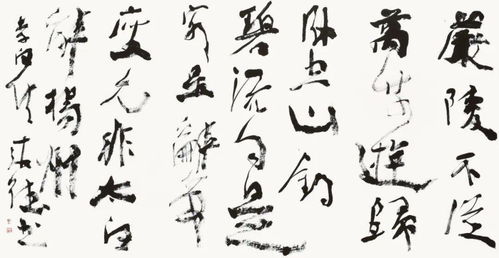 嚴陵不從
萬乘遊歸
卧空山釣
碧流自是
客星辭帝
座元非太白
醉揚州
李白詩 德书